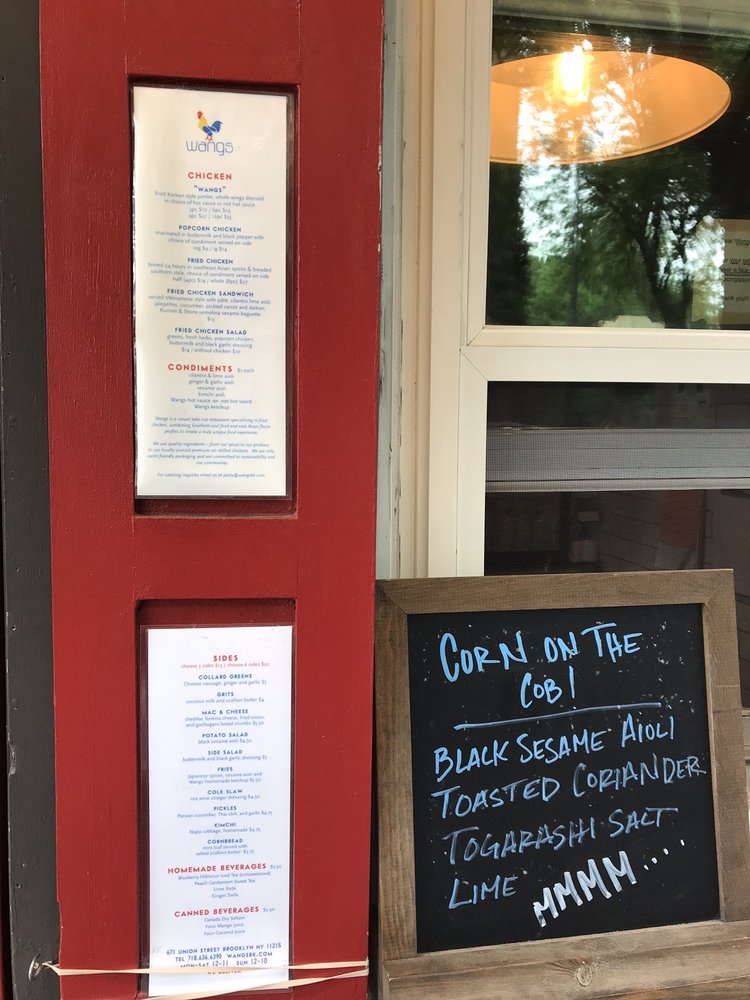 wangs
CHICKEN
"WANGS"
fried Korean style jumbo, whole wings dressed
in choice of hot sauce or not hot sauce
3pc $10 / 6pc $19
9pc $27 / 12pc $35
POPCORN CHICKEN
marinated in buttermilk and black pepper with
choice of condiment served on side
reg $9 / lg $14
FRIED CHICKEN
brined 24 hours in southeast Asian spices & breaded
southern style, choice of condiment served on side
half (4pc) $14 / whole (8pc) $27
FRIED CHICKEN SANDWICH
served Vietnamese style with pâté, cilantro lime aioli,
jalapeños, cucumber, pickled carrot and daikon,
Runner & Stone semolina sesame baguette
$13
FRIED CHICKEN SALAD
greens, fresh herbs, popcorn chicken,
buttermilk and black garlic dressing
$14 / without chicken $10
CONDIMENTS $1 each
cilantro & lime aioli
ginger & garlic aioli
sesame aioli
kimchi aioli
Wangs hot sauce -or- not hot sauce
Wangs ketchup
Wangs is a casual take out restaurant specializing in fried
chicken, combining Southern soul food and east Asian flavor
profiles to create a truly unique food experience.
We use quality ingredients - from our spices to our produce
to our locally sourced premium air chilled chickens. We use only
earth friendly packaging and are committed to sustainability and
our community.
For catering inquiries email us at party@wangsbk.com
SIDES
choose 3 sides $13 / choose 6 sides $22
COLLARD GREENS
Chinese sausage, ginger and garlic $5
GRITS
coconut milk and scallion butter $4
MAC & CHEESE
cheddar, fontina cheese, fried onion,
and gochugaru bread crumbs $5.50
POTATO SALAD
black sesame aioli $4.50
SIDE SALAD
buttermilk and black garlic dressing $5
FRIES
Japanese spices, sesame aioli and
Wangs homemade ketchup $5.50
COLE SLAW
rice wine vinegar dressing $4.50
PICKLES
Persian cucumber, Thai chili, and garlic $4.75
KIMCHI
Napa cabbage, homemade $4.75
CORNBREAD
mini loaf served with
salted scallion butter $3.75
HOMEMADE BEVERAGES $3.50
Blueberry-Hibiscus Iced Tea (unsweetened)
Peach Cardamom Sweet Tea
Lime Soda
Ginger Soda
CANNED BEVERAGES $2.50
Canada Dry Seltzer
Foco Mango Juice
Foco Coconut Juice
671 UNION STREET BROOKLYN NY 11215
TEL 718.636.6390 WANGSBK.COM
MON-SAT 12-11 SUN 12-10
CORN ON THE
COB!
BLACK SESAME AIOLI
TOASTED CORIANDER
TOGARASHI SALT
LIME
MMMM....